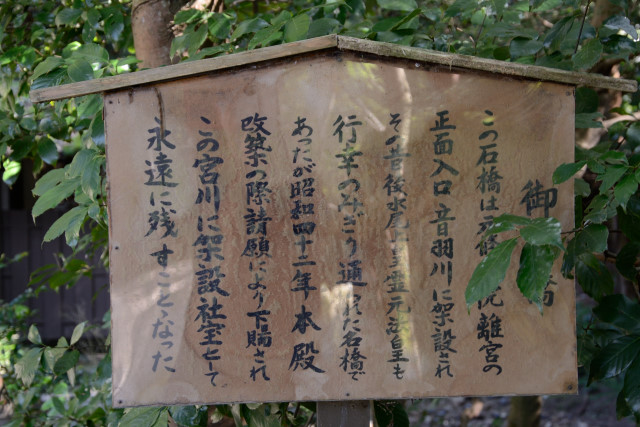 御 橋
この石橋は 修 院離宮の
正面入口音羽川に架設され
その昔後水尾 皇霊元法皇も
行幸のみぎり通られた石橋で
あったが昭和四十二年本殿
改築の際請願により下賜され
この宮川に架設社宝として
永遠に残すことゝなった